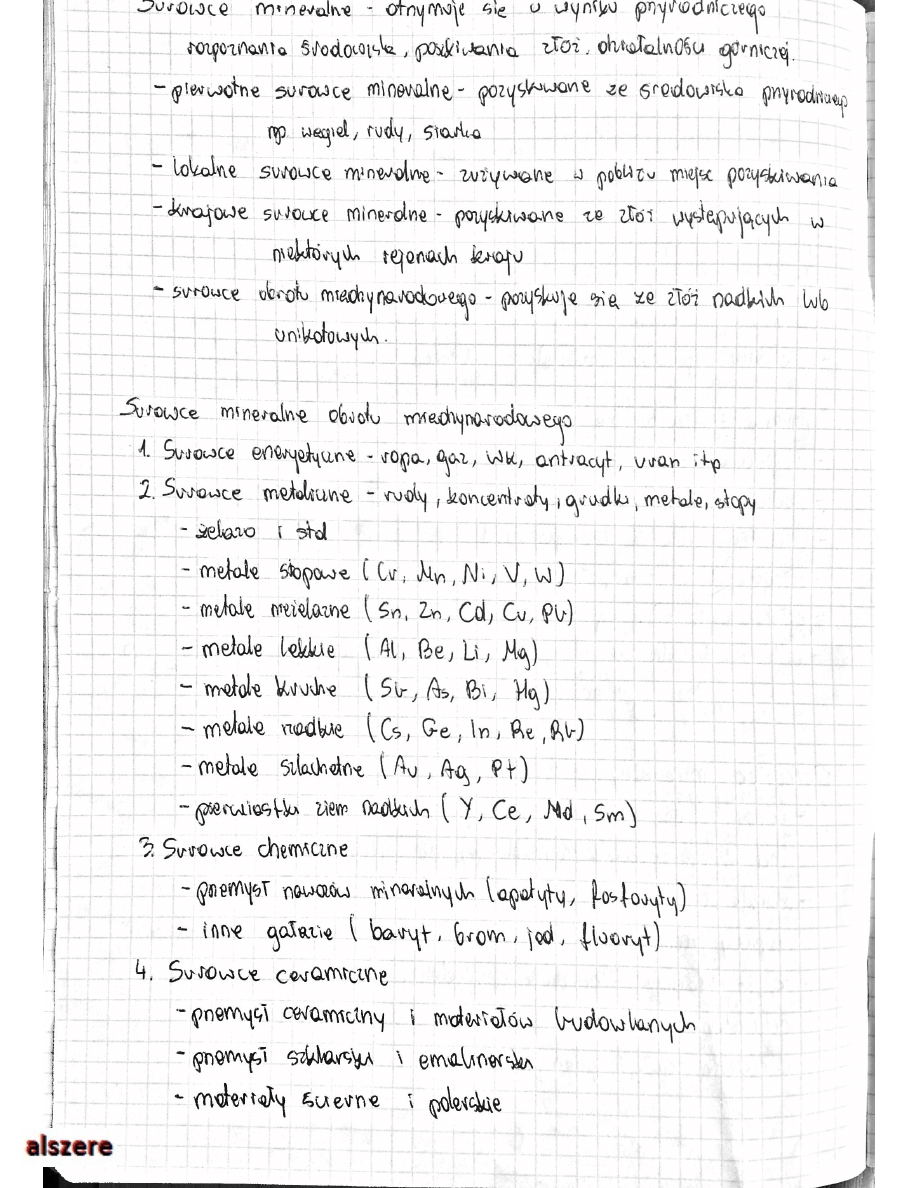 Surowce mineralne - otrzymuje się w wyniku przyrodniczego
rozpoznania środowiska, poszukiwania złóż, działalności górniczej.
- pierwotne surowce mineralne - pozyskiwane ze środowiska przyrodniczego
np węgiel, rudy, siarka
- lokalne surowce mineralne - zużywane w pobliżu miejsc pozyskiwania
- krajowe surowce mineralne - pozyskiwane ze złóż występujących w
niektórych rejonach kraju
- surowce obrotu międzynarodowego - pozyskuje się ze złóż rzadkich lub
unikatowych.
Surowce mineralne obrotu międzynarodowego
1. Surowce energetyczne - ropa, gaz, WK, antracyt, uran itp
2. Surowce metaliczne - rudy, koncentraty, grudki, metale, stopy
- żelazo i stal
- metale stopowe (Cr, Mn, Ni, V, W)
- metale nieżelazne (Sn, Zn, Cd, Cu, Pb)
- metale lekkie (Al, Be, Li, Mg)
- metale kruche (Sb, As, Bi, Hg)
- metale rzadkie (Cs, Ge, In, Re, Rb)
- metale szlachetne (Au, Ag, Pt)
- pierwiastki ziem rzadkich (Y, Ce, Nd, Sm)
3. Surowce chemiczne
- przemysł nawozów mineralnych (apatyty, fosforyty)
- inne gałęzie (baryt, brom, jod, fluoryt)
4. Surowce ceramiczne
- przemysł ceramiczny i materiałów budowlanych
- przemysł szklarski i emalierski
- materiały ścierne i polerskie
alszere